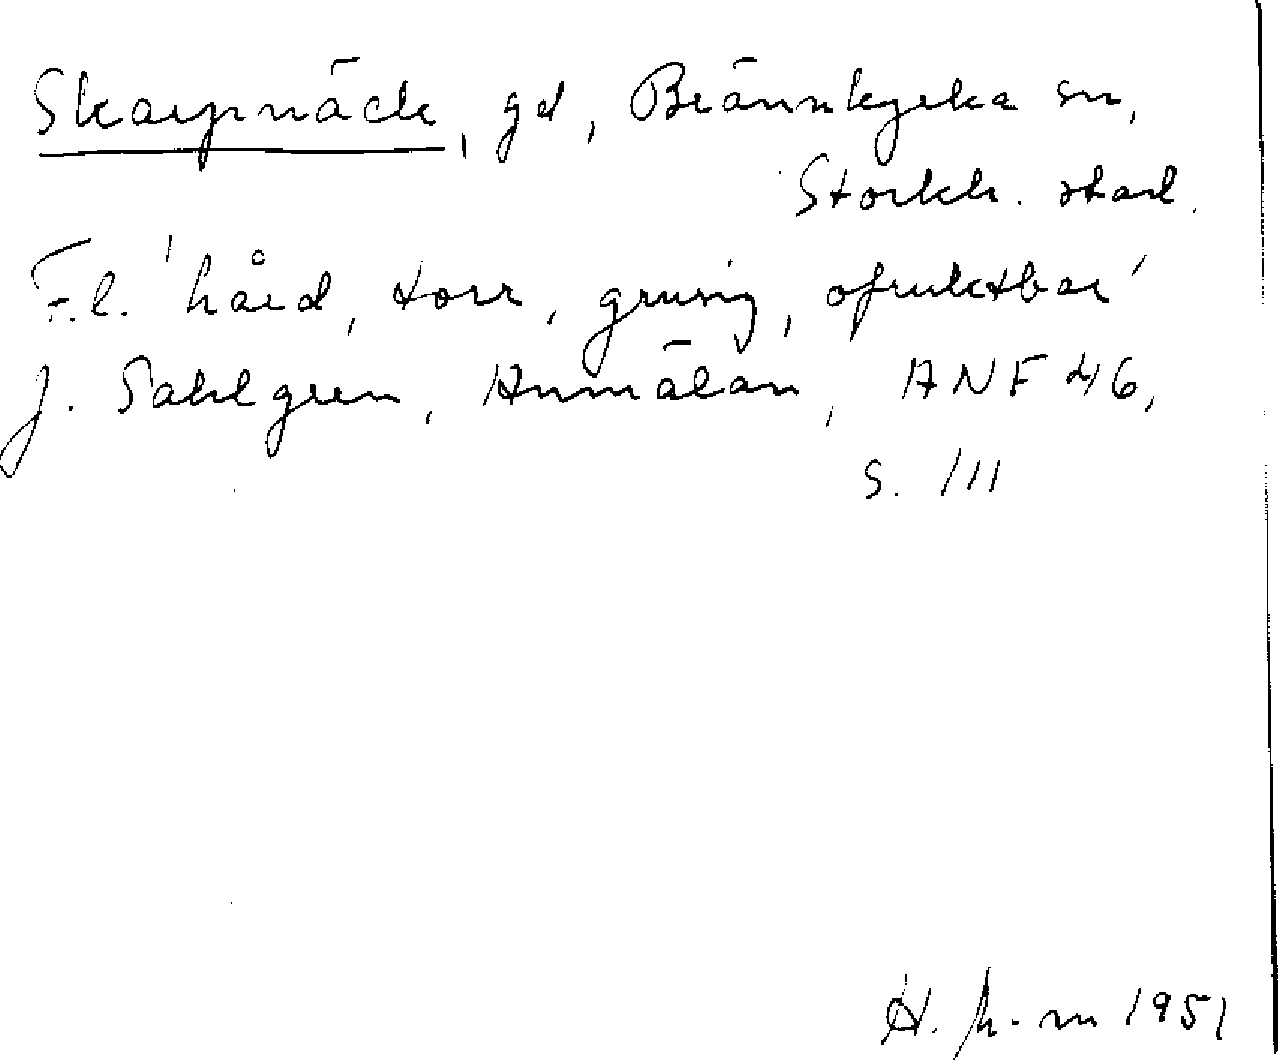 Skarpnäck, gd, Brännkyrka sn,
Stockh. stad.
F.l. 'hård, torr, grusig, ofruktbar'
J. Sahlgren, Anmälan, ANF 46,
s. 111
H. 1951